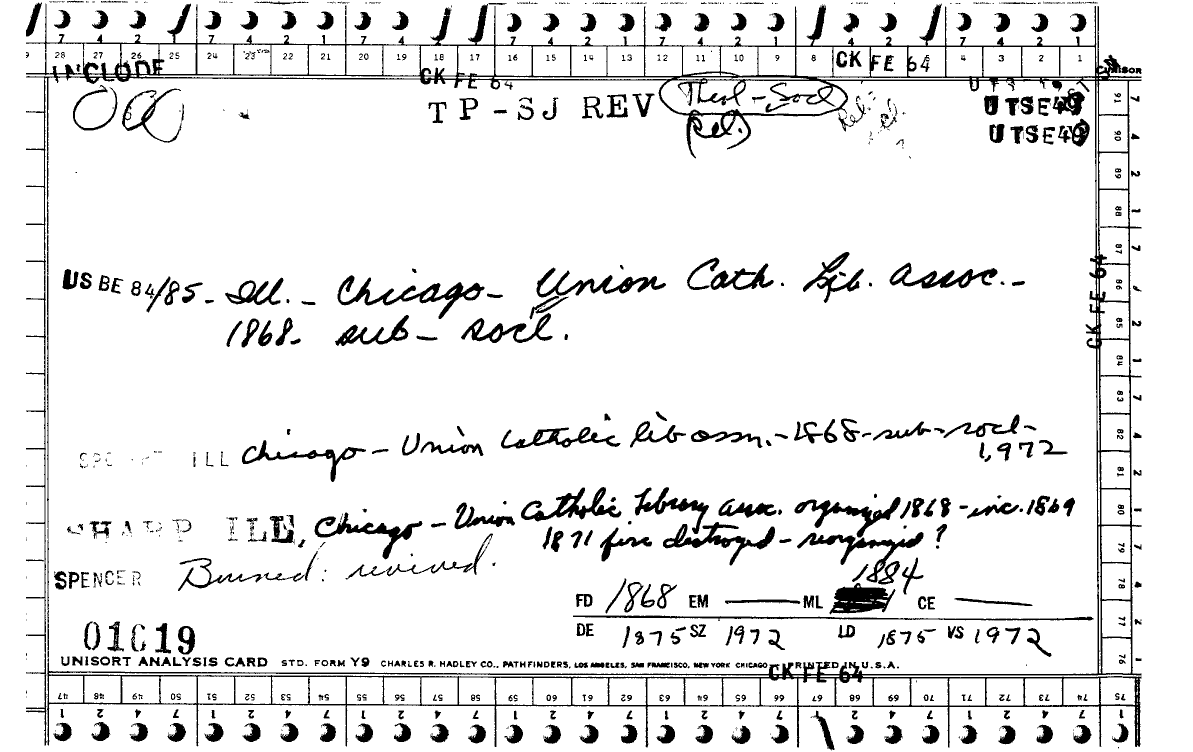 7 4 2 1 7 4 2 1 7 4 2 1 7 4 2 1 7 4 2 1 7 4 2 1 7 4 2 1
28 27 26 25 24 23 22 21 20 19 18 17 16 15 14 13 12 11 10 9 8 7 6 5 4 3 2 1
INCLUDE CK FE 64 CK FE 64
TP-SJ REV Theol-Socl UTSE49
(Rel.) UTSE49
US BE 84/85 - Ill. - Chicago - Union Cath. Lib. Assoc. -
1868 - sub - socl.
ILL Chicago - Union Catholic lib assn. - 1868 - sub - socl -
1,972
SHARP ILL, Chicago - Union Catholic Library Assoc. organized 1868 - inc. 1869
1871 fire distroyed - reorganized?
SPENCER Burned: revived.
1884
FD 1868 EM — ML CE —
DE 1875 SZ 1972 LD 1875 VS 1972
01019
UNISORT ANALYSIS CARD STD. FORM Y9 CHARLES R. HADLEY CO., PATHFINDERS, LOS ANGELES, SAN FRANCISCO, NEW YORK CHICAGO PRINTED IN U.S.A.
CK FE 64
CK FE 64
91 90 89 88 87 86 85 84 83 82 81 80 79 78 77 76
47 48 49 50 51 52 53 54 55 56 57 58 59 60 61 62 63 64 65 66 67 68 69 70 71 72 73 74 75